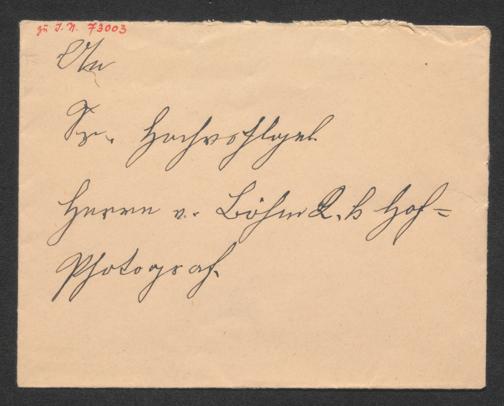 zu I.N. 73003
An
Sr. Hochwohlgeb.
Herrn v. Böhm k. k. Hof=
Photograf.